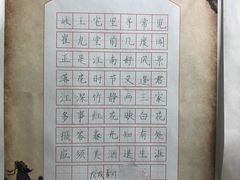 岐王宅里寻常见
崔九堂前几度闻
正是江南好风景
落花时节又逢君
江深竹静两三家
多事红花映白花
报答春光知有处
应须美酒送生涯